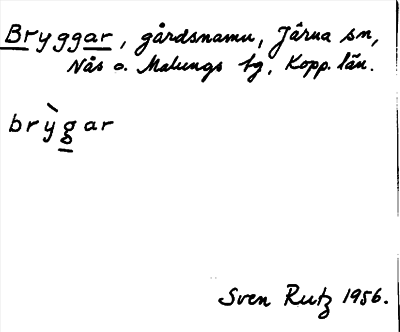 Bryggar, gårdsnamn, Järna sn,
Nås o. Malungs tg, Kopp. län.
brỳgar
Sven Rutz 1956.